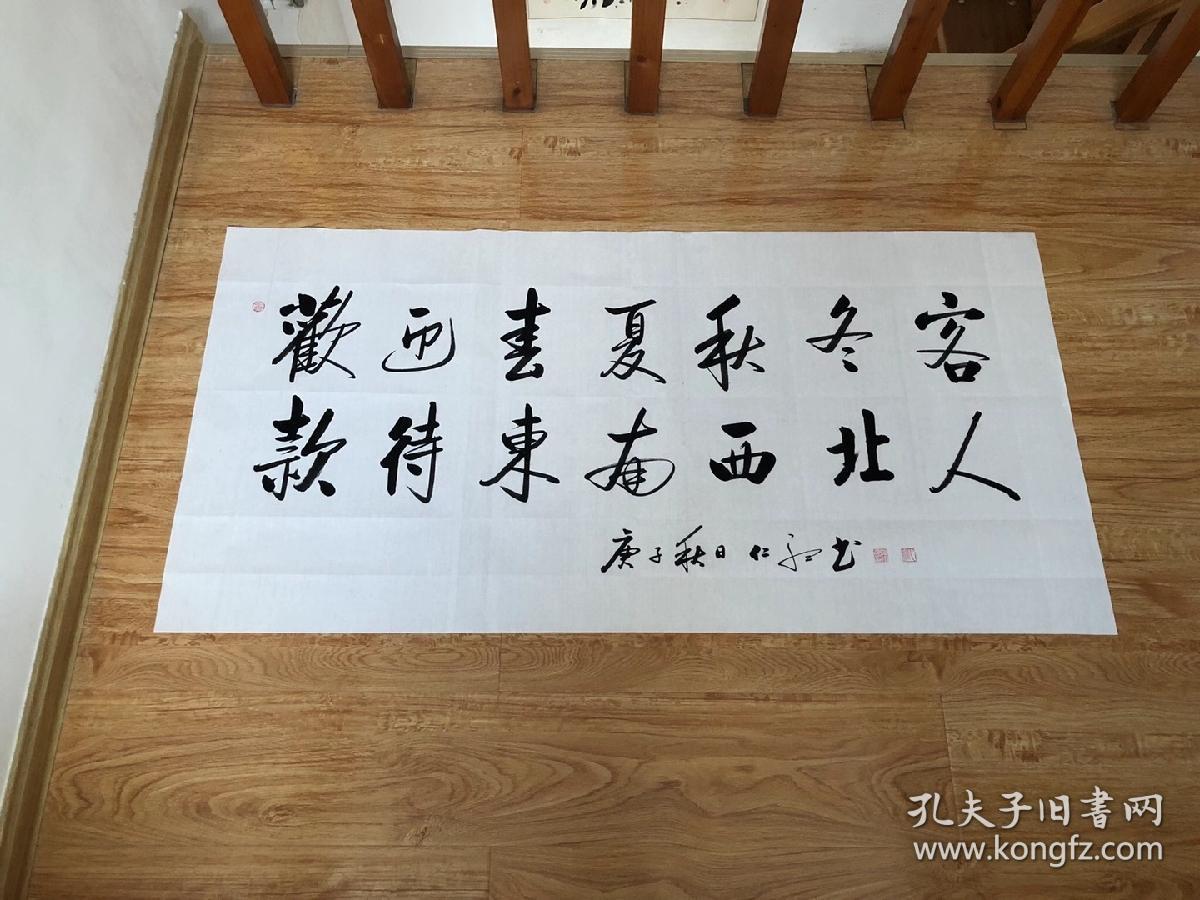 歡迎春夏秋冬客
款待東南西北人
庚子秋日仁 书
孔夫子旧書网
www.kongfz.com